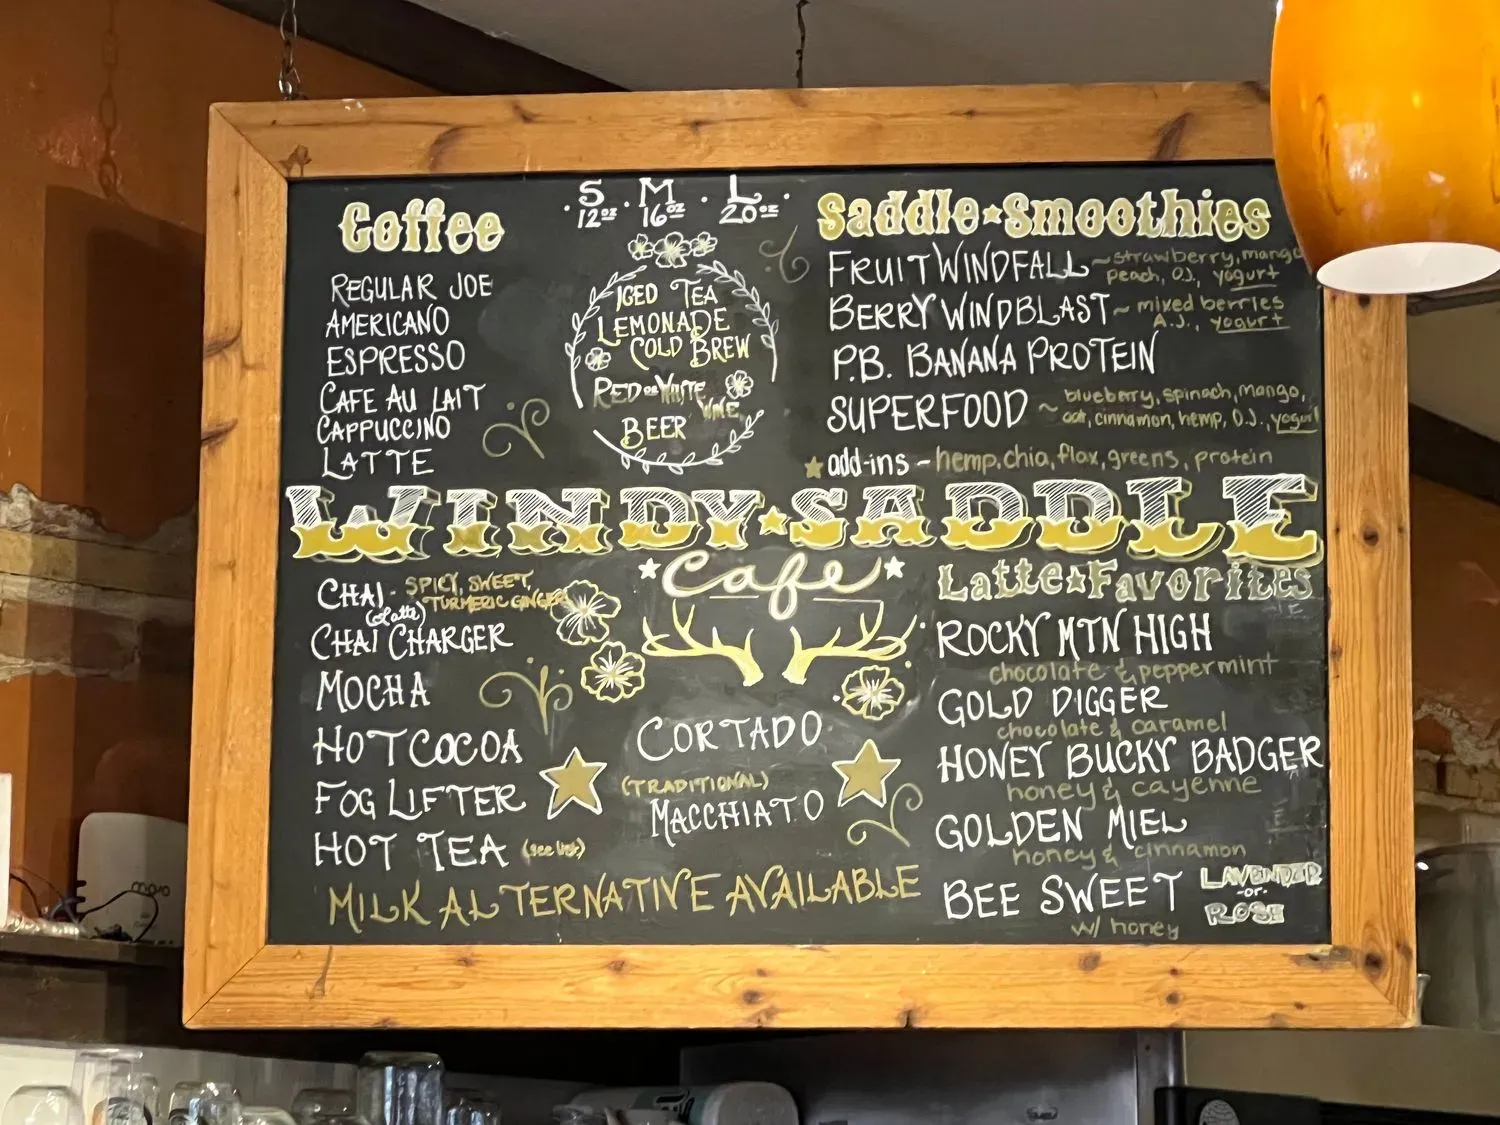 Coffee
REGULAR JOE
AMERICANO
ESPRESSO
CAFE AU LAIT
CAPPUCCINO
LATTE
· S · M · L ·
12oz 16oz 20oz
ICED TEA
LEMONADE
COLD BREW
RED or WHITE
WINE
BEER
Saddle Smoothies
FRUIT WINDFALL ~ strawberry, mango
peach, O.J., yogurt
BERRY WINDBLAST ~ mixed berries
A.J., yogurt
P.B. BANANA PROTEIN
SUPERFOOD ~ blueberry, spinach, mango,
oat, cinnamon, hemp, O.J., yogurt
add-ins - hemp, chia, flax, greens, protein
WINDY SADDLE
Cafe
CHAI - SPICY, SWEET,
TURMERIC GINGER
(latte)
CHAI CHARGER
MOCHA
HOT COCOA
FOG LIFTER
HOT TEA (see list)
CORTADO
(TRADITIONAL)
MACCHIATO
MILK ALTERNATIVE AVAILABLE
Latte Favorites
ROCKY MTN HIGH
chocolate & peppermint
GOLD DIGGER
chocolate & caramel
HONEY BUCKY BADGER
honey & cayenne
GOLDEN MIEL
honey & cinnamon
BEE SWEET LAVENDER
-or-
ROSE
w/ honey